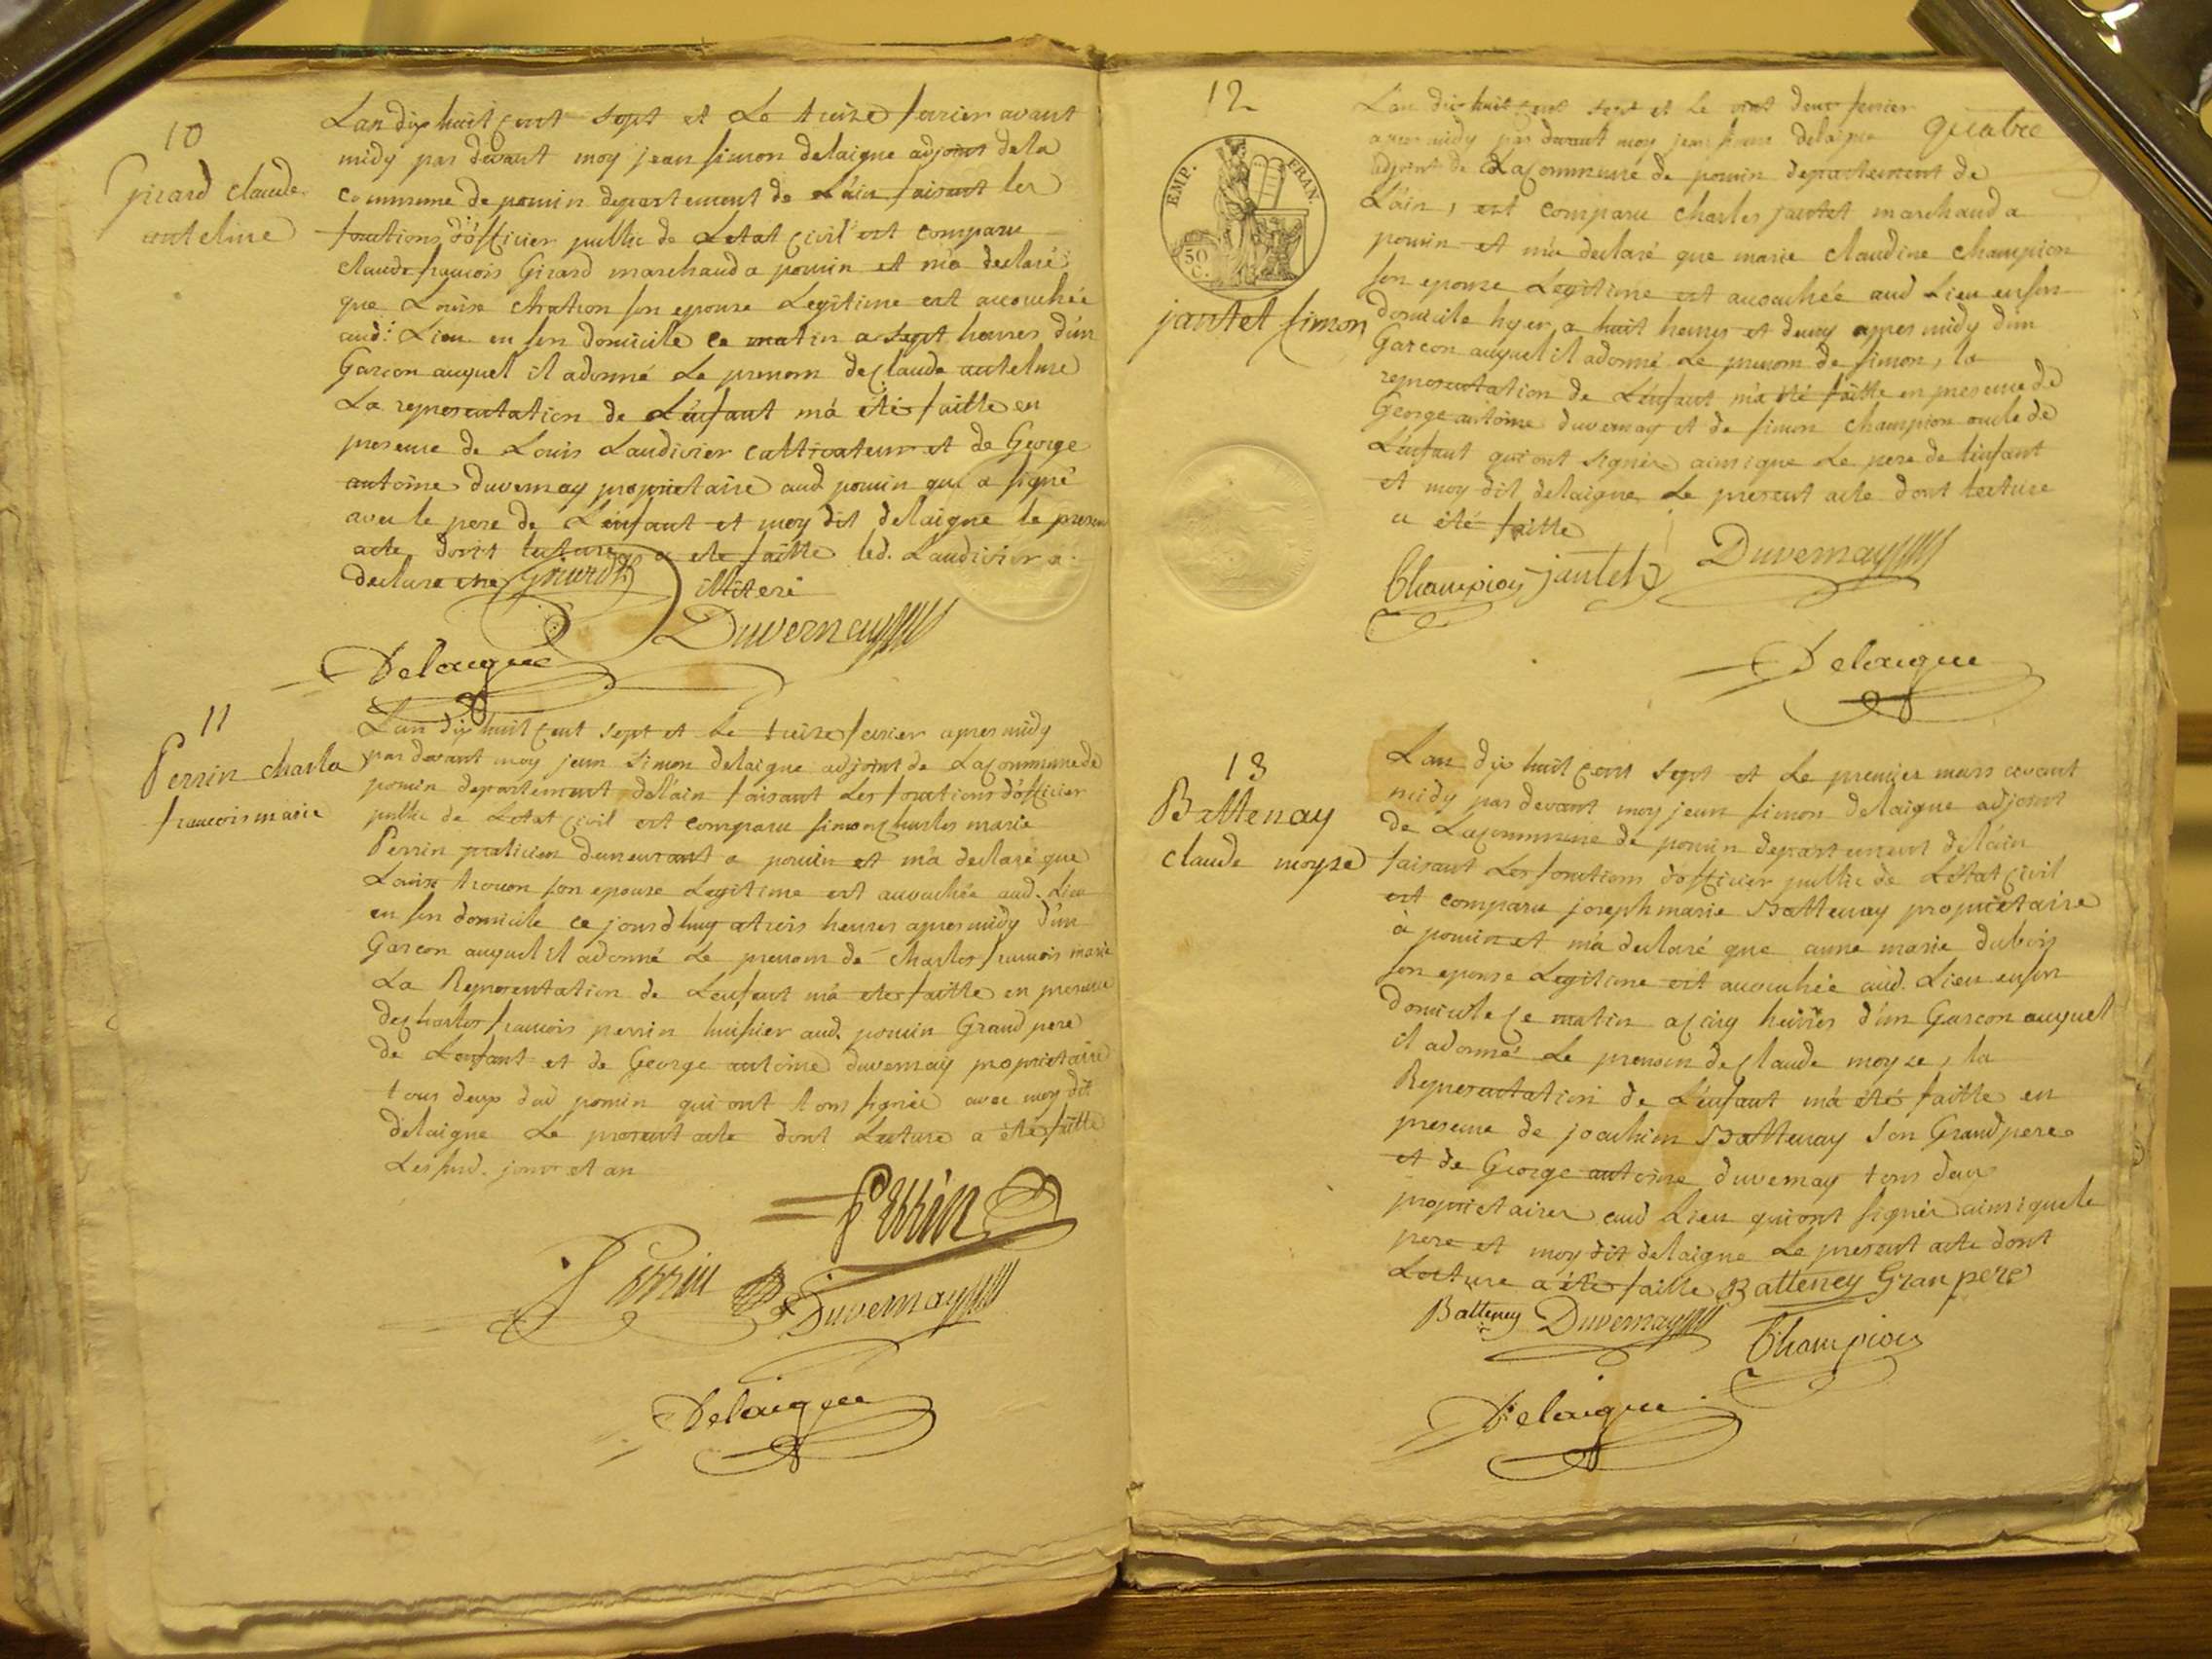 10
Girard claude
antelme
Lan dix huit cent sept et Le treize fevrier avant
midy par devant moy jean simon delaigue adjoint de la
commune de poncin departement de L'ain faisant les
fonctions d'officier public de Letat civil est comparu
claude francois Girard marchand a poncin et m'a declaré
que Louise son epouse Legitime est accouchée
aud. Lieu en son domicile ce matin a sept heures d'un
Garcon auquel il a donné Le prenom de claude antelme
La representation de L'enfant m'a étée faitte en
presence de Louis Laudivier cultivateur et de George
antoine duvernay proprietaire aud poncin qui a signé
avec le pere de L'enfant et moy dit delaigue le present
acte dont lecture a ete faitte led. Laudivier a
declaré etre illiteré
Girard
Duvernay
Delaigue
11
Perrin charle
francois marie
L'an dix huit cent sept et Le treize fevrier apres midy
par devant moy jean simon delaigue adjoint de La commune de
poncin departement de l'ain faisant Les fonctions d'officier
public de Letat civil est comparu simon charles marie
Perrin praticien demeurant a poncin et m'a declaré que
Louise son epouse Legitime est accouchée aud. Lieu
en son domicile ce jourd'huy a trois heures apres midy d'un
Garcon auquel il a donné Le prenom de charles francois marie
La Representation de Lenfant m'a etee faitte en presence
de charles francois perrin huissier aud. poncin Grand pere
de Lenfant et de George antoine duvernay proprietaire
tous deux dud poncin qui ont tous signée avec moy dit
delaigue Le present acte dont Lecture a étée faitte
Les susd. jour et an
Perrin
Perrin
Duvernay
Delaigue
12
quatre
EMP. FRAN.
50 C.
jantet simon
L'an dix huit cent sept et Le vint deux fevrier
apres midy par devant moy jean simon delaigue
adjoint de La commune de poncin departement de
L'ain, est comparu charles jantet marchand a
poncin et m'a declaré que marie claudine champion
son epouse Legitime est accouchée aud Lieu en son
domicile hyer a huit heures et demy apres midy d'un
Garcon auquel il a donné Le prenom de simon, la
representation de L'enfant m'a été faitte en presence de
George antoine duvernay et de simon champion oncle de
L'enfant qui ont signée ainsi que Le pere de l'enfant
et moy dit delaigue Le present acte dont lecture
a été faitte
Champion jantet Duvernay
Delaigue
13
Battenay
claude moyse
L'an dix huit cent sept et Le premier mars avant
midy par devant moy jean simon delaigue adjoint
de La commune de poncin departement de l'ain
faisant Les fonctions d'officier public de L'état civil
est comparu joseph marie Battenay proprietaire
à poncin et m'a declaré que anne marie dubois
son epouse Legitime est accouchée aud. Lieu en son
domicile ce matin a cinq heures d'un Garcon auquel
il a donné Le prenom de claude moyse, la
Representation de L'enfant m'a étée faitte en
presence de joachim Battenay son Grand pere
et de George antoine duvernay tous deux
proprietaires aud Lieu qui ont signée ainsi que le
pere et moy dit delaigue Le present acte dont
Lecture a étée faitte Batteney Gran pere
Batteney Duvernay Champion
Delaigue